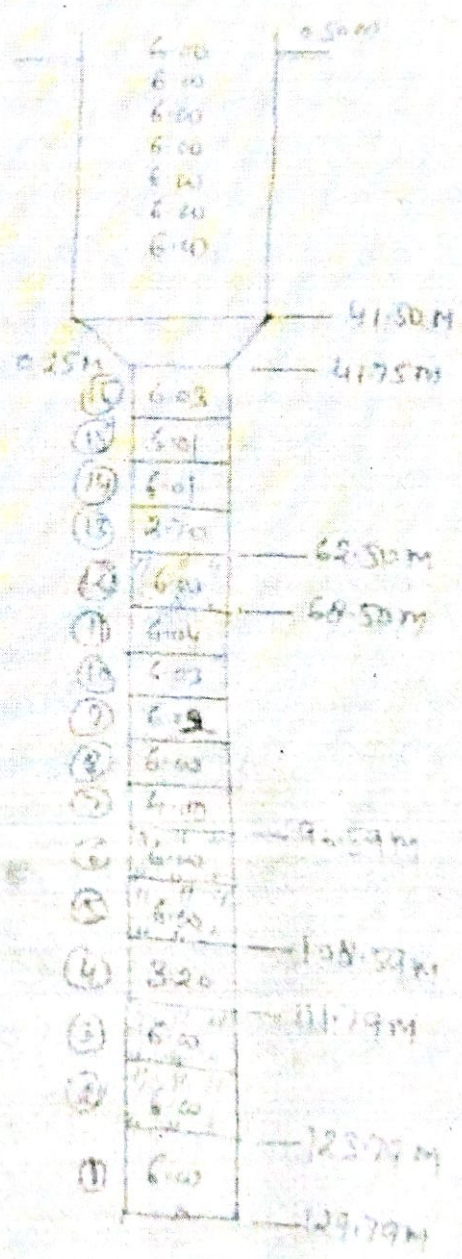 0.50m
6.00
6.00
6.00
6.00
6.00
6.00
6.00
41.50 M
0.25M
41.75m
16 6.03
15 6.01
14 6.01
13 2.70
62.50 M
12 6.00
68.50 M
11 6.04
10 6.03
9 6.02
8 6.00
7 4.00
6 6.00
5 6.00
108.59 M
4 3.20
111.79 M
3 6.00
2 6.00
123.79 M
1 6.00
129.79 M